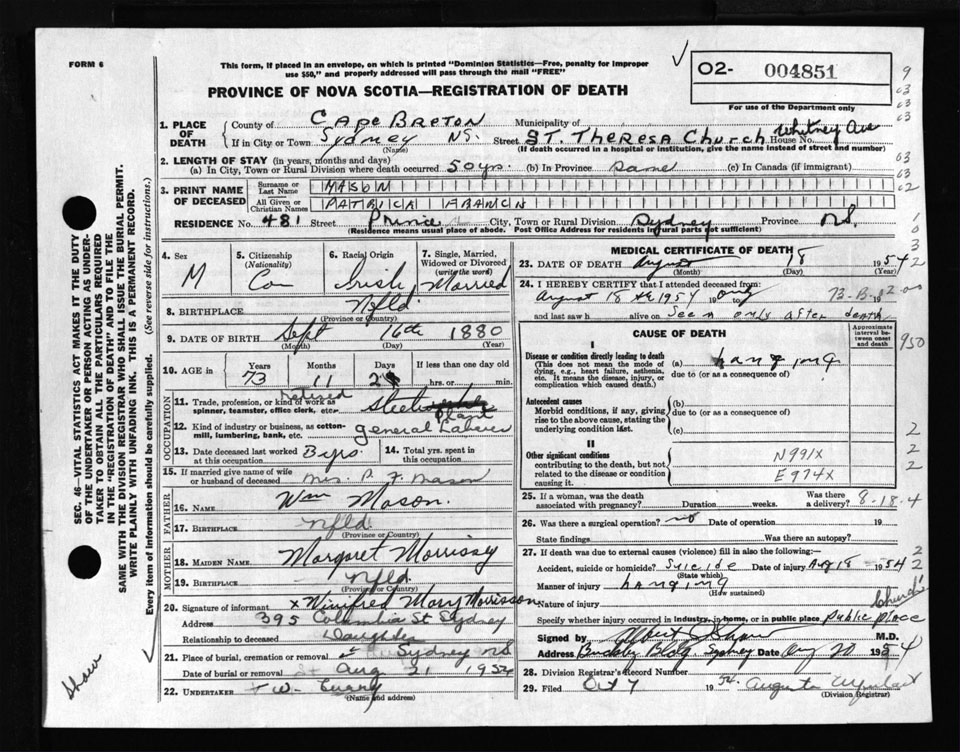 FORM 6
This form, if placed in an envelope, on which is printed "Dominion Statistics—Free, penalty for improper
use $50," and properly addressed will pass through the mail "FREE"
O2- 004851
For use of the Department only
PROVINCE OF NOVA SCOTIA—REGISTRATION OF DEATH
1. PLACE OF DEATH
County of Cape Breton Municipality of
If in City or Town Sydney NS. Street ST. Theresa Church House No. Whitney Ave
(Name) (If death occurred in a hospital or institution, give the name instead of street and number)
2. LENGTH OF STAY (in years, months and days)
(a) In City, Town or Rural Division where death occurred 50 yrs. (b) In Province same (c) In Canada (if immigrant)
3. PRINT NAME OF DECEASED
Surname or Last Name MASON
All Given or Christian Names PATRICK FRANCIS
RESIDENCE No. 481 Street Prince City, Town or Rural Division Sydney Province NS.
(Residence means usual place of abode. Post Office Address for residents in rural parts not sufficient)
4. Sex
M
5. Citizenship
(Nationality)
Can
6. Racial Origin
Irish
7. Single, Married, Widowed or Divorced
(write the word)
Married
8. BIRTHPLACE Nfld.
(Province or Country)
9. DATE OF BIRTH Sept 16th 1880
(Month) (Day) (Year)
10. AGE in Years Months Days If less than one day
73 11 hrs. or min.
OCCUPATION
11. Trade, profession, or kind of work as
spinner, teamster, office clerk, etc. retired Steel plant
12. Kind of industry or business, as cotton-
mill, lumbering, bank, etc. general Laborer
13. Date deceased last worked
at this occupation
14. Total yrs. spent in
this occupation
15. If married give name of wife
or husband of deceased Mrs. P. F. Mason
FATHER
16. NAME Wm Mason.
17. BIRTHPLACE nfld.
(Province or Country)
MOTHER
18. MAIDEN NAME Margaret Morrissy
19. BIRTHPLACE nfld.
(Province or Country)
20. Signature of informant x Winifred Mary Morrisson
Address 395 Columbia St Sydney
Relationship to deceased Daughter
21. Place of burial, cremation or removal Sydney NS
Date of burial or removal Aug 21 1954
22. UNDERTAKER
(Name and address)
MEDICAL CERTIFICATE OF DEATH
23. DATE OF DEATH August 18 1954
(Month) (Day) (Year)
24. I HEREBY CERTIFY that I attended deceased from:
August 18 th 1954 to only 19
and last saw h alive on Seen only after death
73-B-
CAUSE OF DEATH
Approximate interval between onset and death
I
Disease or condition directly leading to death
(This does not mean the mode of
dying, e.g., heart failure, asthenia,
etc. It means the disease, injury, or
complication which caused death.)
(a) hanging
due to (or as a consequence of)
Antecedent causes
Morbid conditions, if any, giving
rise to the above cause, stating the
underlying condition last.
(b)
due to (or as a consequence of)
(c)
II
Other significant conditions
contributing to the death, but not
related to the disease or condition
causing it.
N991X
E974X
950
25. If a woman, was the death
associated with pregnancy? Duration weeks. Was there
a delivery? 8-18-4
26. Was there a surgical operation? no Date of operation 19
State findings Was there an autopsy?
27. If death was due to external causes (violence) fill in also the following:—
Accident, suicide or homicide? Suicide Date of injury Aug 18 1954
(State which)
Manner of injury hanging
(How sustained)
Nature of injury
Church
Specify whether injury occurred in industry, in home, or in public place public place
Signed by M.D.
Address Bldg. Sydney Date Aug 20 1954
28. Division Registrar's Record Number
29. Filed Oct 7 1954.
(Division Registrar)
SEC. 46—VITAL STATISTICS ACT MAKES IT THE DUTY
OF THE UNDERTAKER OR PERSON ACTING AS UNDER-
TAKER TO OBTAIN ALL THE PARTICULARS REQUIRED
IN THE "REGISTRATION OF DEATH" AND TO FILE THE
SAME WITH THE DIVISION REGISTRAR WHO SHALL ISSUE THE BURIAL PERMIT.
WRITE PLAINLY WITH UNFADING INK. THIS IS A PERMANENT RECORD.
Every item of information should be carefully supplied. (See reverse side for instructions.)
Shaw